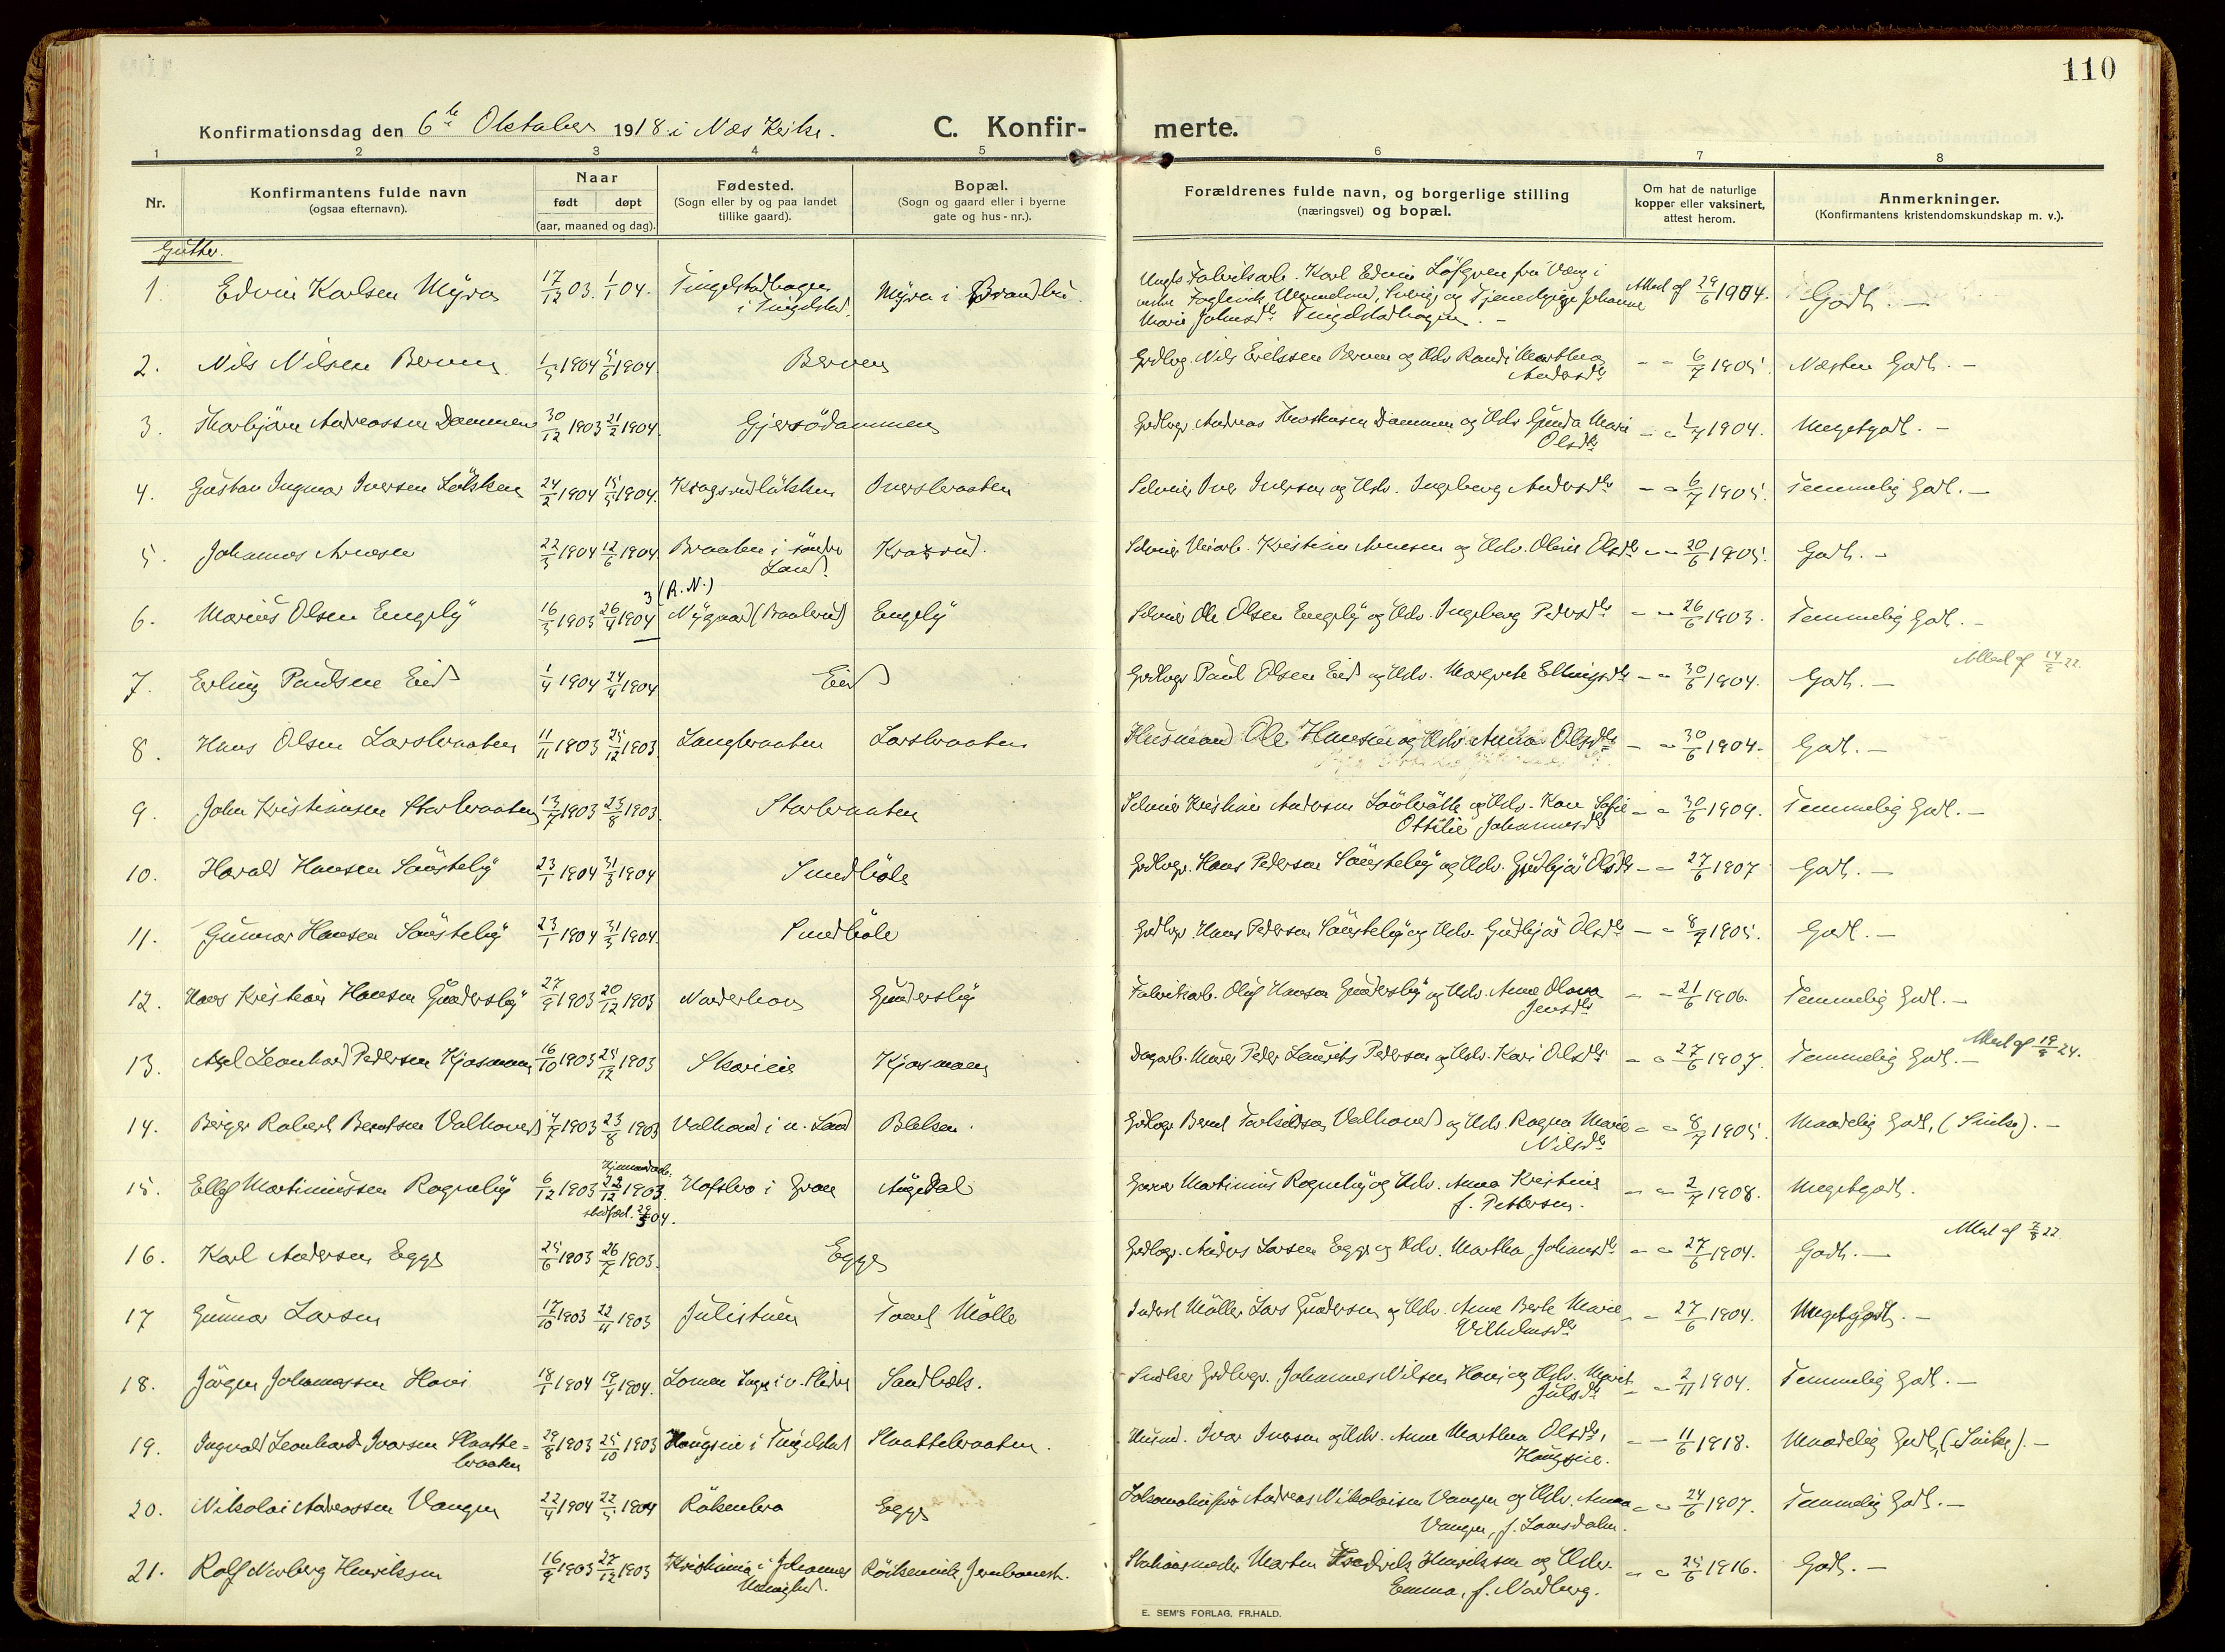 110
Konfirmationsdag den 6te Oktober 1918 i Næs Kirke.
C. Konfir- merte.
1 2 3 4 5 6 7 8
Nr.
Konfirmantens fulde navn
(ogsaa efternavn).
Naar
født døpt
(aar, maaned og dag).
Fødested.
(Sogn eller by og paa landet
tillike gaard).
Bopæl.
(Sogn og gaard eller i byerne
gate og hus-nr.).
Forældrenes fulde navn, og borgerlige stilling
(næringsvei) og bopæl.
Om hat de naturlige
kopper eller vaksinert,
attest herom.
Anmerkninger.
(Konfirmantens kristendomskundskap m. v.).
Gutter.
1. Edvin Karlsen Myra 17/12 03. 1/1 04. Tingelstadhagen i Tingelstad. Myra i Brandbu Ungk. Fabrikarb. Karl Edvin Löfgren fra Sverige og Tjenestepige Johanne Marie Johnsdtr Tingelstadhagen. - Attest af 29/6 1904. Godt. -
2. Nils Nilsen Berven 1/3 1904 5/6 1904. Berven Grdbrg. Nils Eriksen Berven og Hstr Randi Marthea Andersdtr - - 6/7 1905. Næsten Godt. -
3. Thorbjørn Andreassen Dammen 30/12 1903 21/2 1904. Gjersödammen Grdbrgr. Andreas Dammen og Hstr Gunda Marie Olsdtr - - 1/7 1904. Megetgodt. -
4. Gustav Ingmar Iversen Løkken 24/2 1904 15/5 1904. Kragsrudløkken Iversbraaten Selveier Iver Iversen og Hstr. Ingeborg Andersdtr - - 6/7 1905. Temmelig Godt. -
5. Johannes Arnesen 22/3 1904 12/6 1904 Braaten i söndre Land. Selveier Kristian Arnesen og Hstr. Oline Olsdtr - - 20/6 1905. Godt. -
6. Marius Olsen Engely 16/3 1903 26/4 1904 3 (R.N.) Nygaard Engely Selveier Ole Olsen Engely og Hstr. Ingeborg Pedersdtr - - 26/6 1903. Temmelig Godt. -
7. Erling Paulsen Eid 1/4 1904 24/4 1904 Eid Grdbrgr Paul Olsen Eid og Hstr. Margrete Ellingsdtr - - 30/6 1904. Godt. - Attest af 14/2 22.
8. Hans Olsen Larsbraaten 11/11 1903 25/12 1903. Langbraaten Larsbraaten Husmand Ole Hansen og Hstr. Anna Olsdtr - - 30/6 1904. Godt. -
9. John Kristiansen Storbraaten 13/7 1903 23/8 1903. Storbraaten Selveier Kristian Andersen og Hstr. Kari Sofie Ottilie Johannesdtr - - 30/6 1909. Temmelig Godt. -
10. Harald Hansen Søusteby 23/1 1904 31/3 1904 Smedhøle Grdbrgr. Hans Pedersen Søusteby og Hstr. Gudbjør Olsdtr - - 27/6 1907 Godt. -
11. Gunnar Hansen Søusteby 23/1 1904 31/3 1904. Smedhøle Grdbrgr. Hans Pedersen Søusteby og Hstr. Gudbjør Olsdtr - - 8/7 1905. Godt. -
12. Hans Kristian Hansen Gundersby 27/9 1903 20/12 1903 Norderhov Gundersby Fabrikarb. Oluf Hansen Gundersby og Hstr. Anne Olava Jensdtr - - 21/6 1906. Temmelig Godt. -
13. Axel Leonhard Pedersen Kjosmoen 16/10 1903 25/12 1903 Skarieie Kjosmoen Dagarb. Murer Peder Laurits Pedersen og Hstr. Kari Olsdtr - - 27/6 1907. Temmelig Godt. - Attest af 19/9 24.
14. Birger Robert Berntsen Valhoved 4/7 1903 23/8 1903 Valhovd i n. Land Grdbrgr Bernt Valhoved og Hstr. Ragna Marie Nilsdtr - - 8/7 1905. Maadelig Godt, (Sinke). -
15. Ellef Martiniussen Rognaby 6/12 1903 Hjemmedøbt. 22/12 1903. stadfæst. 29/3 04. Hofsbro i Gran Augedal Garver Martinius Rognaby og Hstr. Anna Kristine f. Pettersen. - - 2/7 1908. Megetgodt.
16. Karl Andersen Egge 25/6 1903 26/7 1903. Egge Grdbrgr. Anders Larsen Egge og Hstr. Martha Johansdtr - - 27/6 1904. Godt. - Attest af 7/8 22.
17 Gunnar Larsen 17/10 1903 22/11 1903 Julistuen Tomt Mølle Møller Lars Gundersen og Hstr. Anne Berte Marie Vilhelmsdtr - - 27/6 1904. Megetgodt. -
18. Jørgen Johannessen Hovi 18/1 1904 19/4 1904. Lomen Sogn i v. Slidre Sandbæk. Grdbrgr. Johannes Nilsen Hovi og Hstr. Marit Julsdtr - - 2/11 1904. Temmelig Godt. -
19. Ingvald Leonhard Ivarsen Slaatte-
braaten 29/8 1903 25/10 1903 Haugseie i Tingelstad Slaattebraaten. Husmd. Ivar Iversen og Hstr. Anne Marthea Olsdtr, Haugseie. - - 11/6 1918. Maadelig Godt, (Sinke). -
20. Nikolai Andreassen Vangen 22/4 1904 22/5 1904 Røkenbro Egge Andreas Nikolaisen Vangen og Hstr. Anna Vangen, f. Lomsdalen. - - 24/6 1907. Temmelig Godt. -
21. Rolf Norberg Henriksen 16/9 1903 27/12 1903 Kristiania i Johannes Menighed. Røikenvik Jernbanest. Stationsmester Morten Fredrik Henriksen og Hstr. Emma, f. Nordberg. - - 25/6 1916. Godt. -
E. SEM'S FORLAG, FR.HALD.